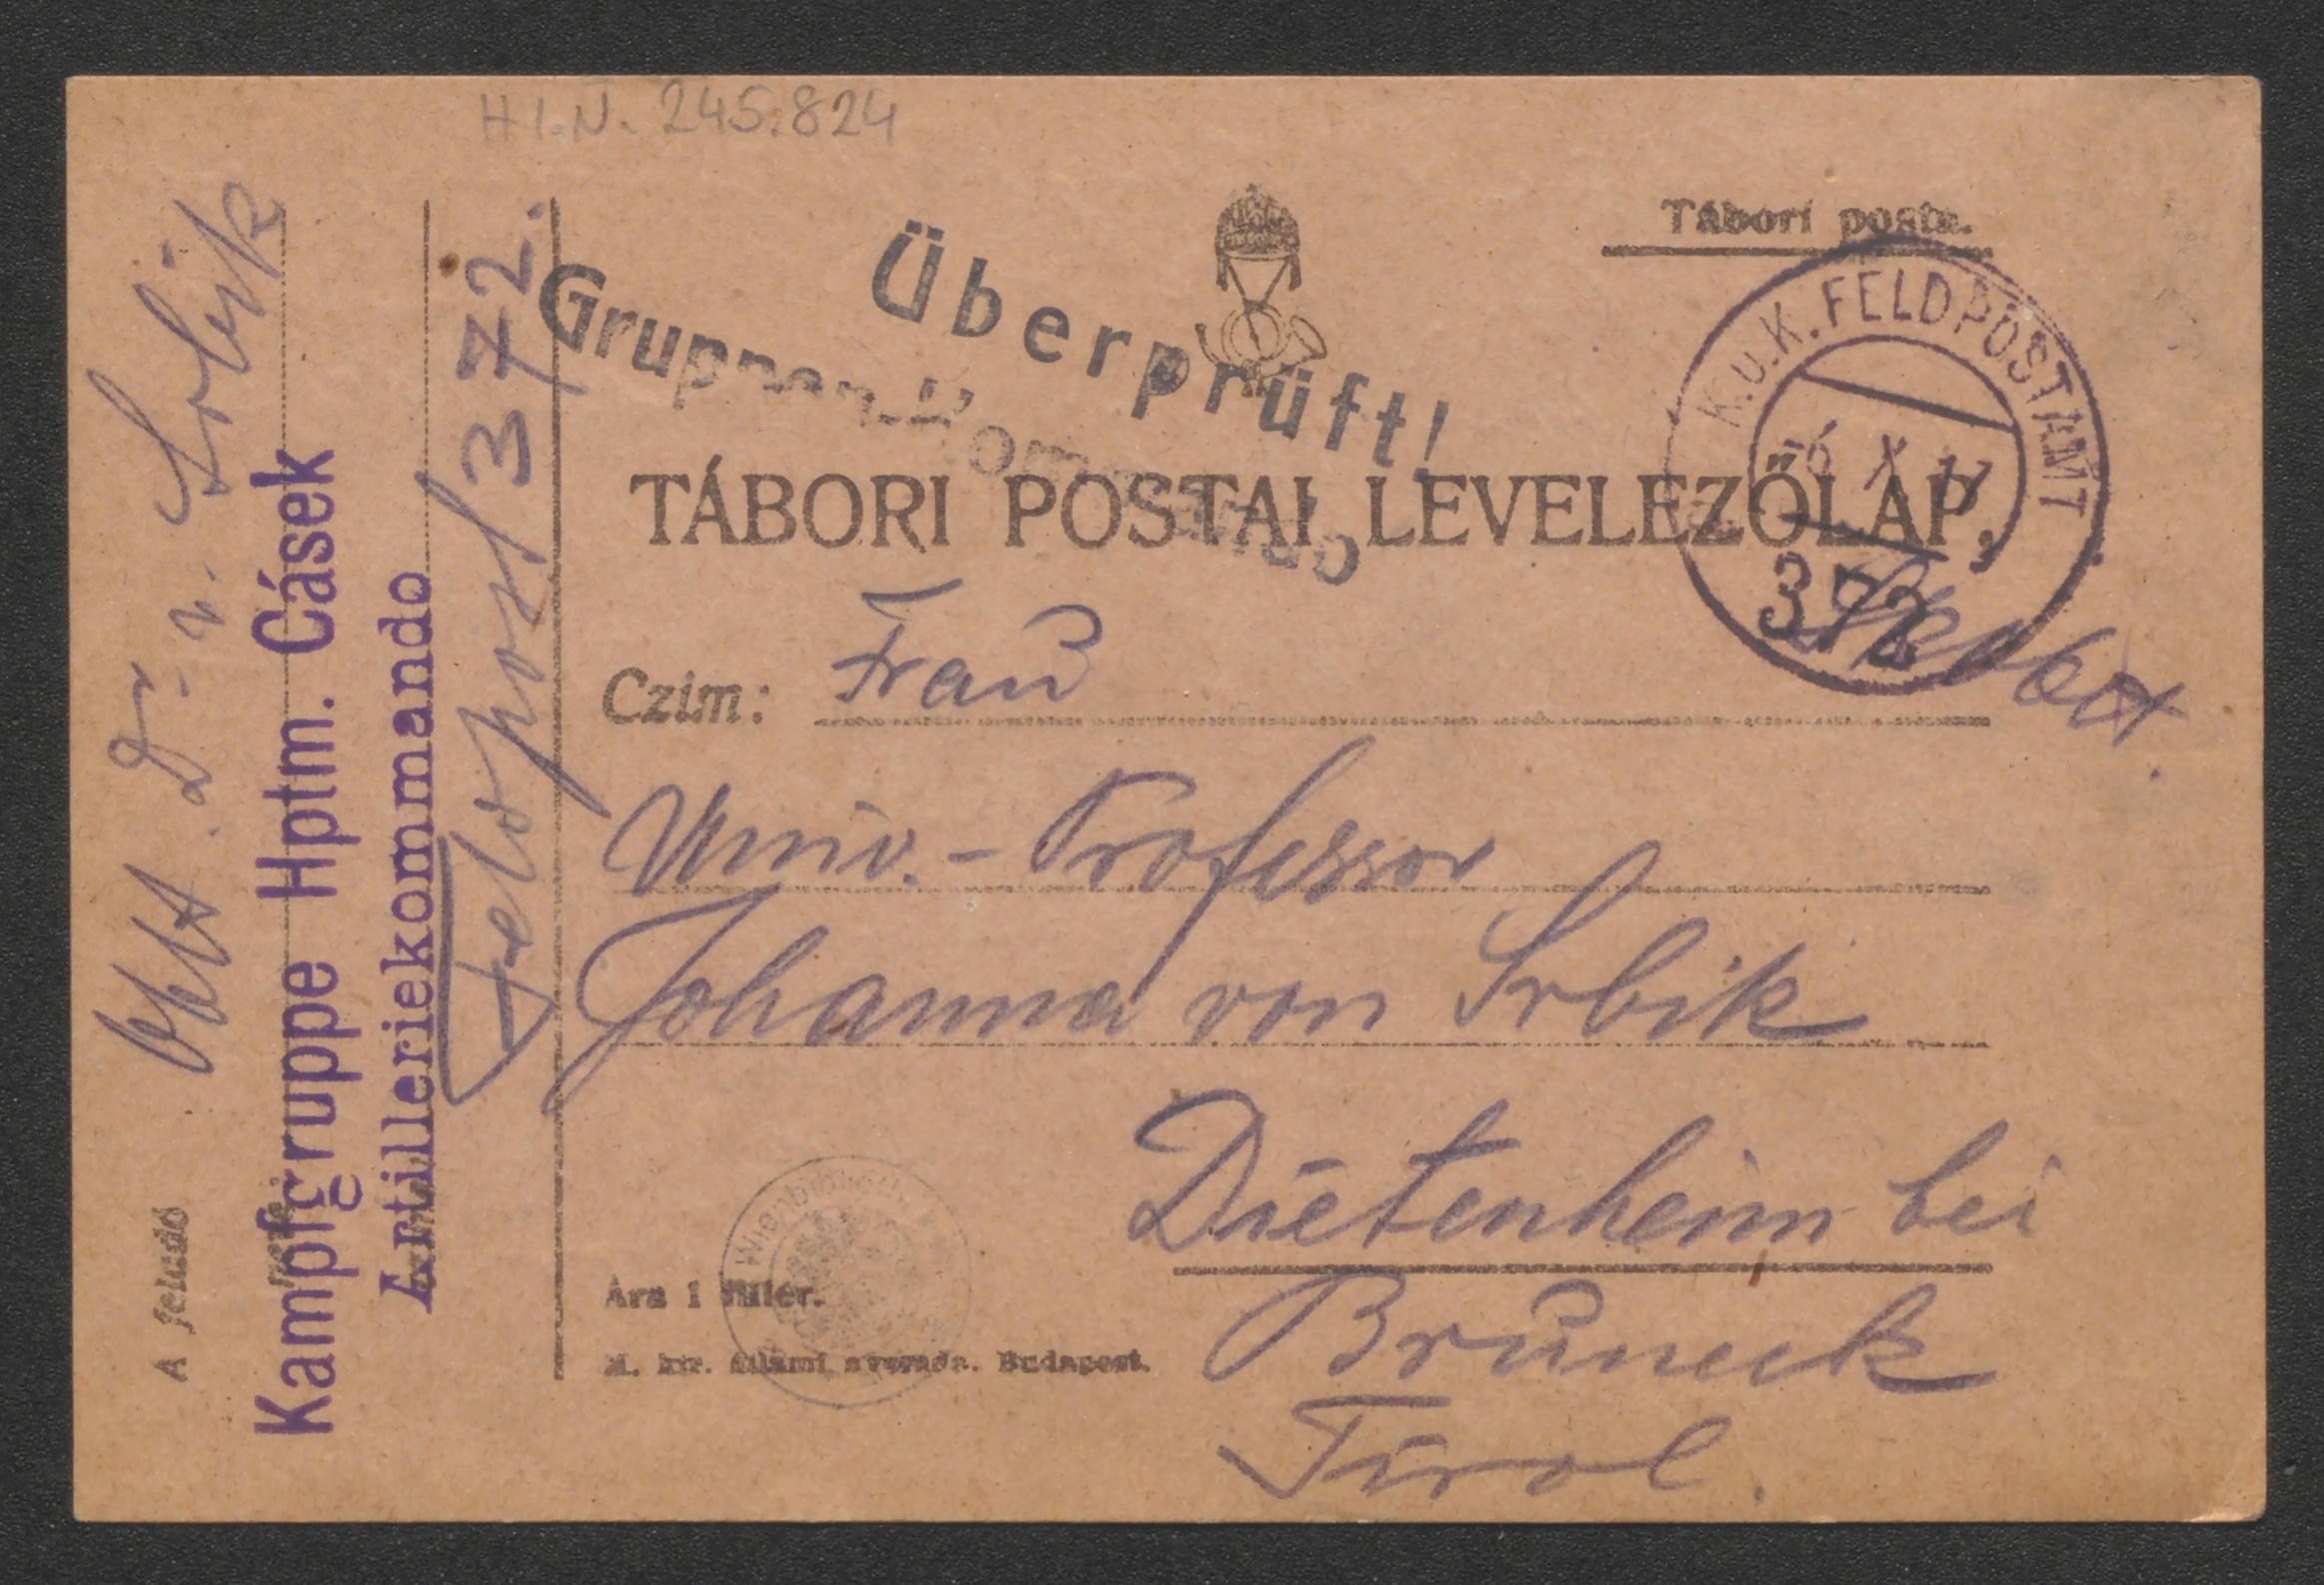 H.I.N. 245.824
Tábori posta.
Überprüft!
Gruppen-Kommando
K.u.K. FELDPOSTAMT
-6 X 17
372
TÁBORI POSTAI LEVELEZŐLAP.
Czim: Frau
Univ.-Professor
Johanna von Srbik
Dietenheim bei
Bruneck
Tirol.
Ára 1 fillér.
M. kir. állami nyomda. Budapest.
Wienbibliothek
A feladó
Oblt. Dr. v. Srbik
Kampfgruppe Hptm. Cásek
Artilleriekommando
Feldpost 372.